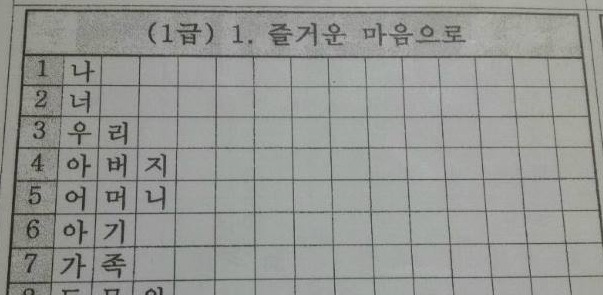 (1급) 1. 즐거운 마음으로
1 나
2 너
3 우리
4 아버지
5 어머니
6 아기
7 가족